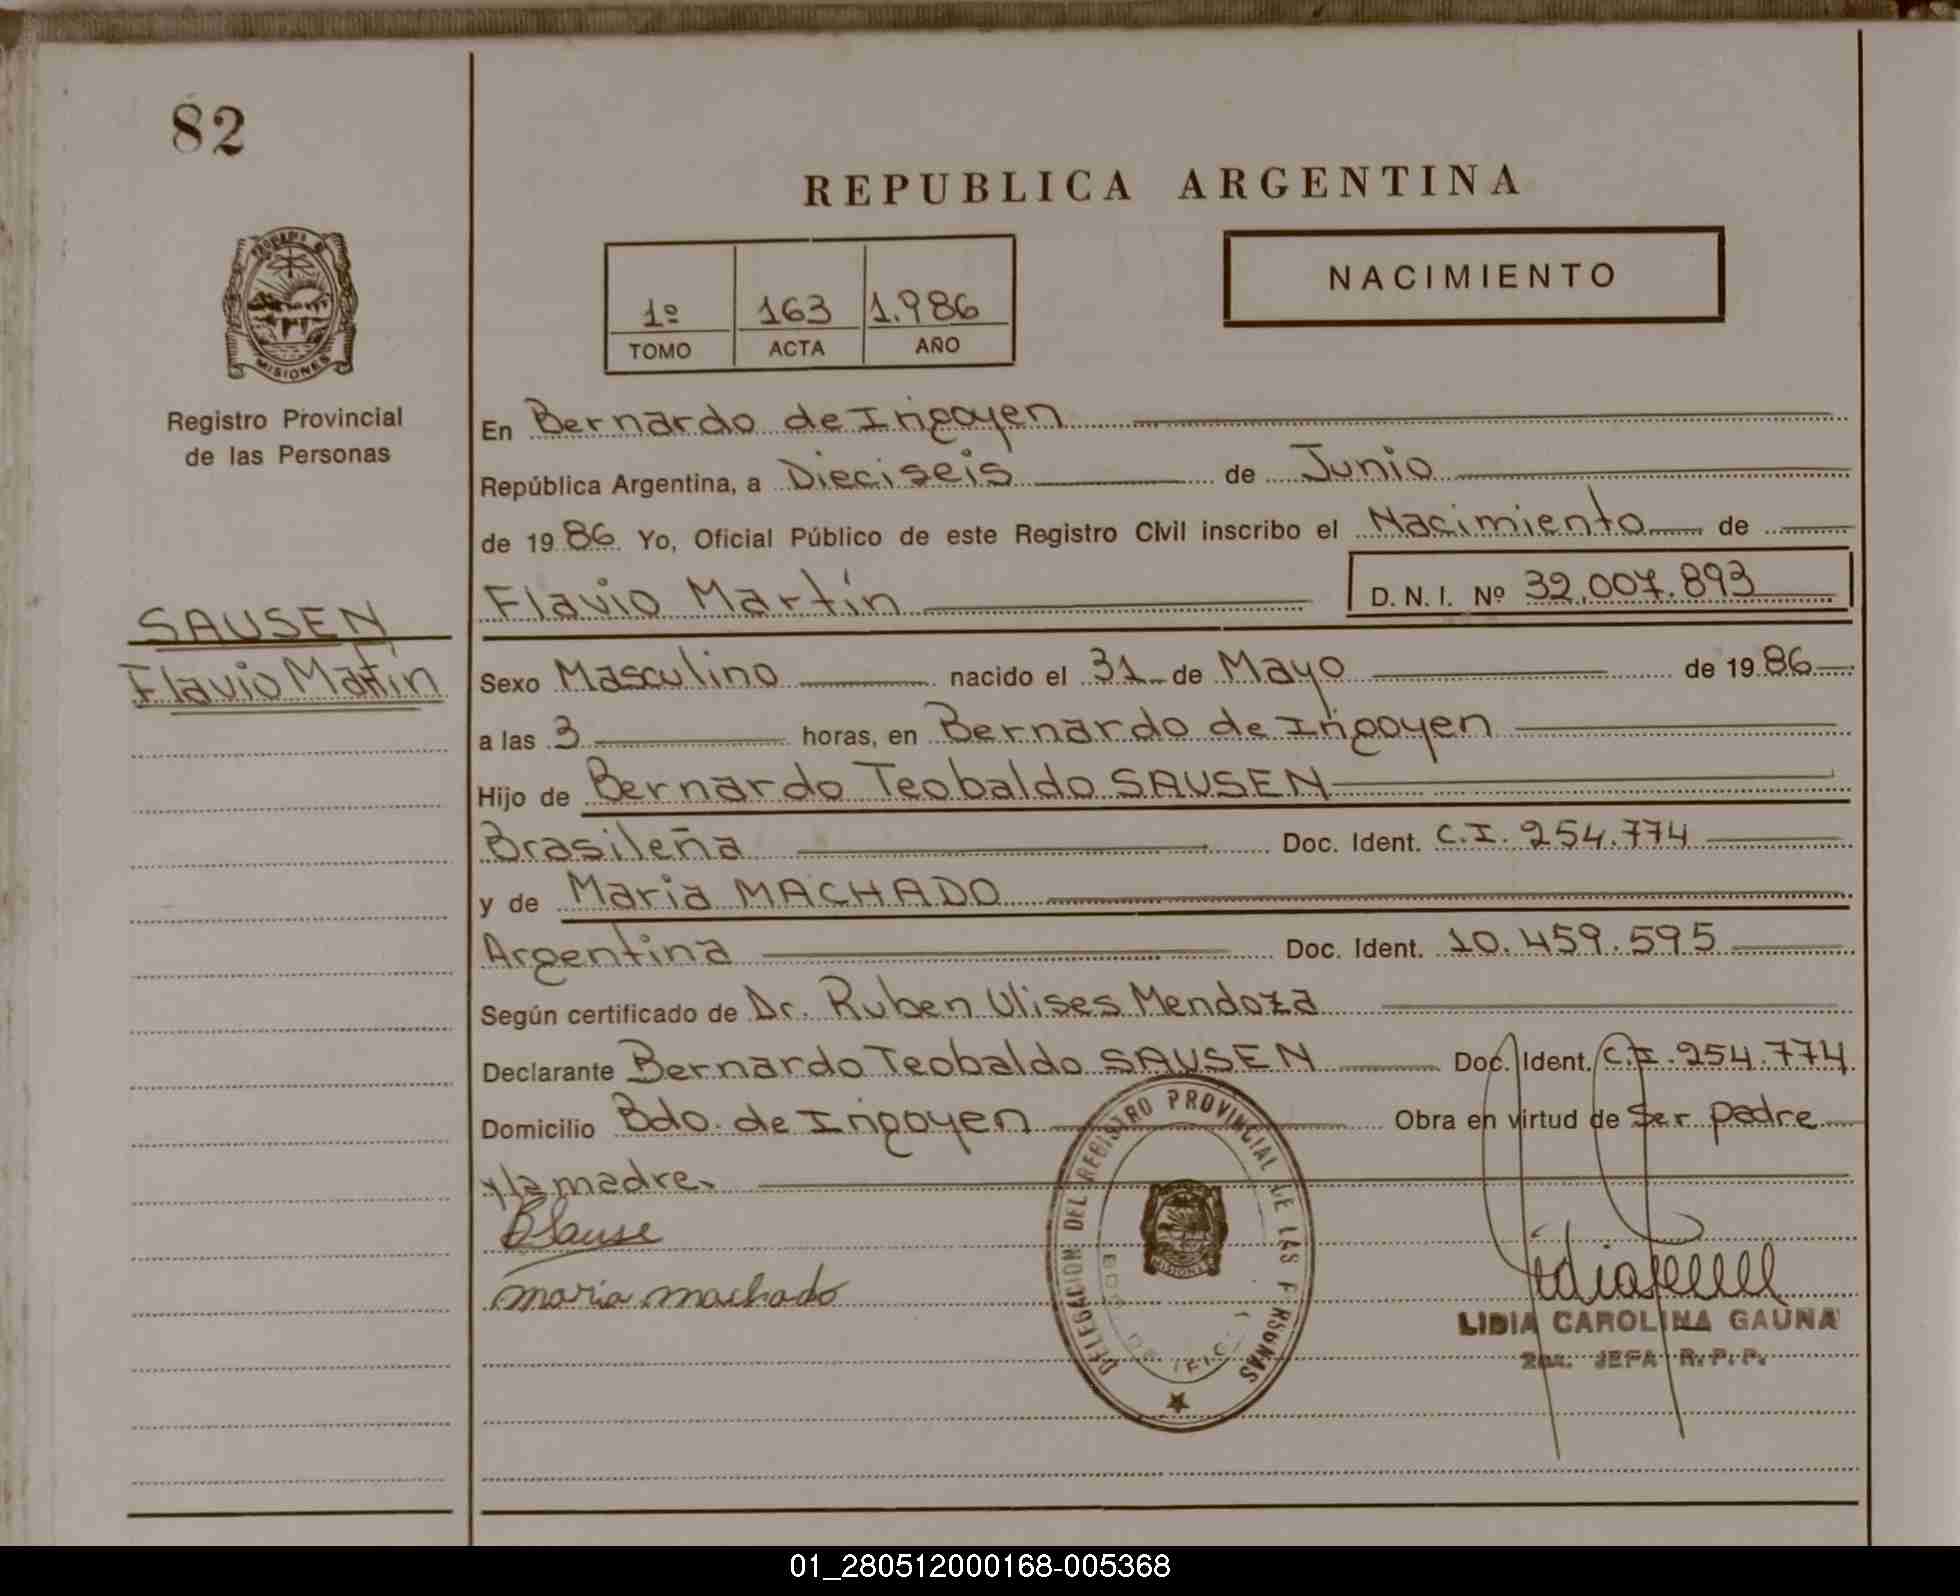 82
REPUBLICA ARGENTINA
1º 163 1.986
TOMO ACTA AÑO
NACIMIENTO
MISIONES
Registro Provincial
de las Personas
SAUSEN
Flavio Martín
En Bernardo de Irigoyen
República Argentina, a Dieciseis de Junio
de 1986 Yo, Oficial Público de este Registro Civil inscribo el Nacimiento de
Flavio Martín D. N. I. Nº 32.007.893
Sexo Masculino nacido el 31 de Mayo de 1986
a las 3 horas, en Bernardo de Irigoyen
Hijo de Bernardo Teobaldo SAUSEN
Brasileña Doc. Ident. C.I. 254.774
y de Maria MACHADO
Argentina Doc. Ident. 10.459.595
Según certificado de Dr. Ruben Ulises Mendoza
Declarante Bernardo Teobaldo SAUSEN Doc. Ident. C.I. 254.774
Domicilio Bdo. de Irigoyen Obra en virtud de Ser padre
y la madre.
maria machado
DELEGACION DEL REGISTRO PROVINCIAL DE LAS PERSONAS
MISIONES
LIDIA CAROLINA GAUNA
2da. JEFA R.P.P.
01_280512000168-005368